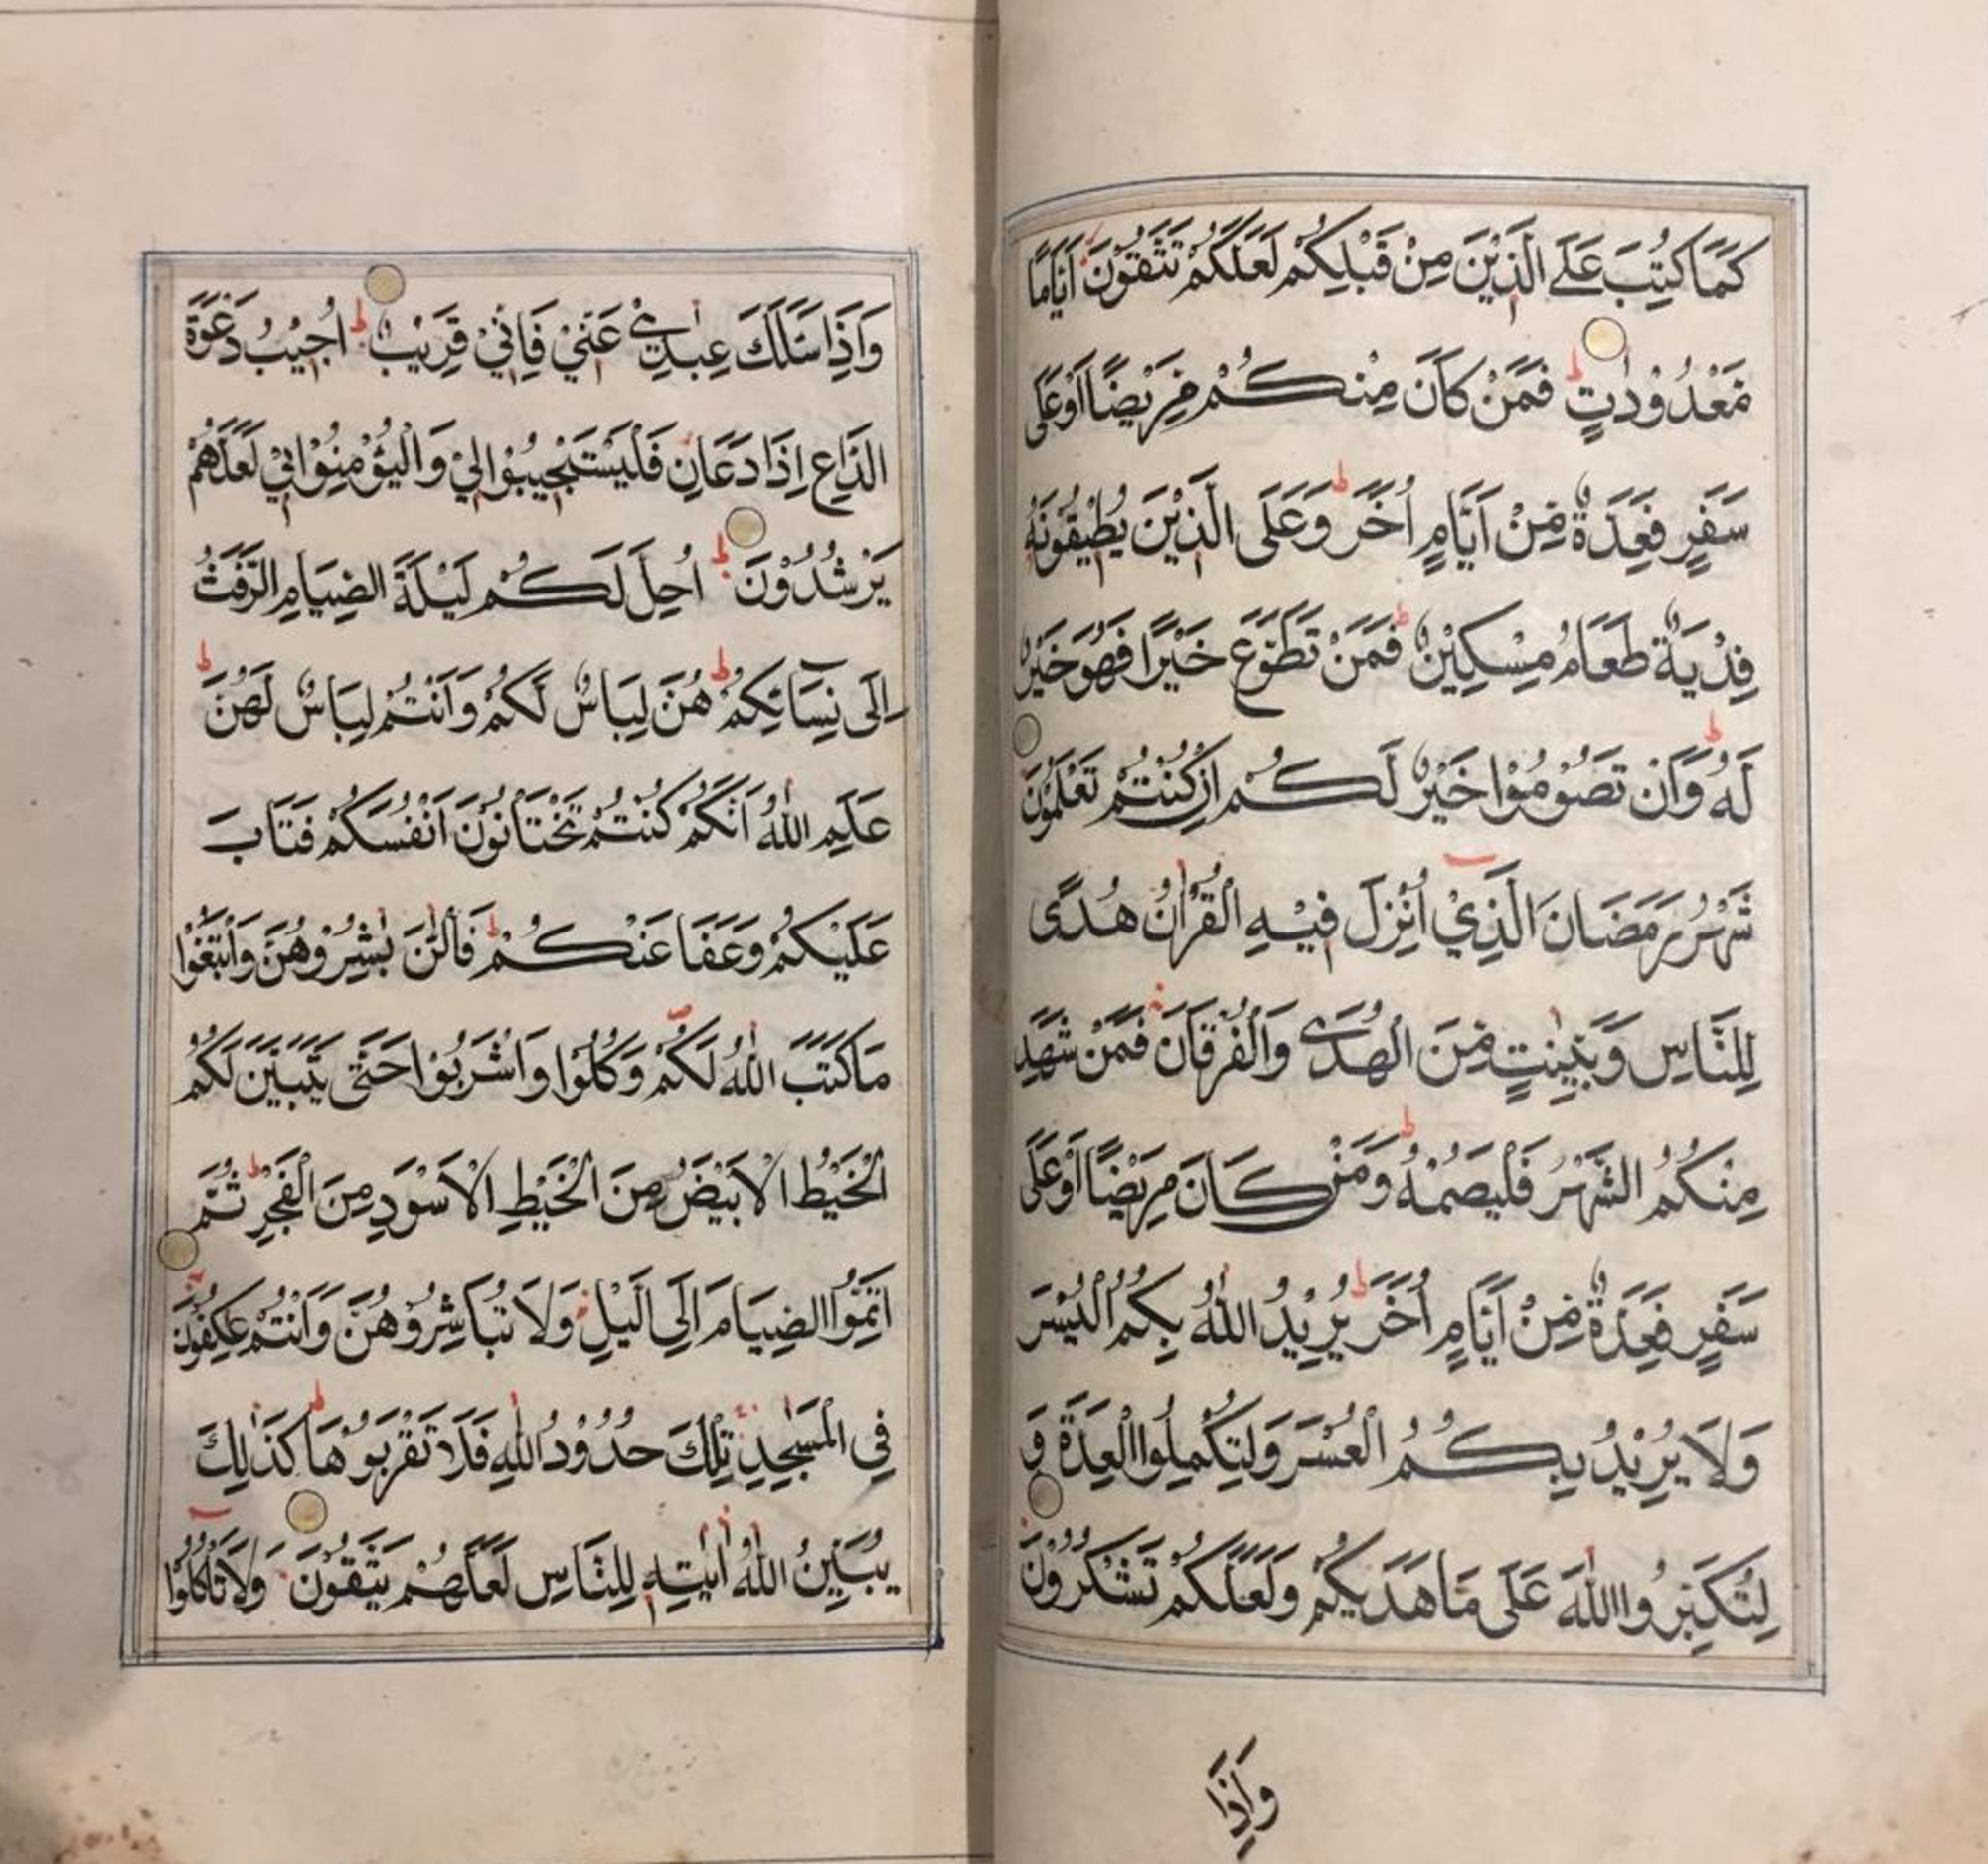 كَمَا كُتِبَ عَلَے الَّذِیْنَ مِنْ قَبْلِكُمْ لَعَلَّكُمْ تَتَّقُوْنَ اَیَّامًا
مَّعْدُوْدٰتٍ ط فَمَنْ كَانَ مِنْكُمْ مَّرِیْضًا اَوْ عَلٰی
سَفَرٍ فَعِدَّةٌ مِّنْ اَیَّامٍ اُخَرَ ط وَعَلَی الَّذِیْنَ یُطِیْقُوْنَهٗ
فِدْیَةٌ طَعَامُ مِسْكِیْنٍ ط فَمَنْ تَطَوَّعَ خَیْرًا فَهُوَ خَیْرٌ
لَهٗ ط وَاَنْ تَصُوْمُوْا خَیْرٌ لَّكُمْ اِنْ كُنْتُمْ تَعْلَمُوْنَ
شَهْرُ رَمَضَانَ الَّذِیْ اُنْزِلَ فِیْهِ الْقُرْاٰنُ هُدًی
لِّلنَّاسِ وَبَیِّنٰتٍ مِّنَ الْهُدٰی وَالْفُرْقَانِ فَمَنْ شَهِدَ
مِنْكُمُ الشَّهْرَ فَلْیَصُمْهُ ط وَمَنْ كَانَ مَرِیْضًا اَوْ عَلٰی
سَفَرٍ فَعِدَّةٌ مِّنْ اَیَّامٍ اُخَرَ ط یُرِیْدُ اللّٰهُ بِكُمُ الْیُسْرَ
وَلَا یُرِیْدُ بِكُمُ الْعُسْرَ وَلِتُكْمِلُوا الْعِدَّةَ وَ
لِتُكَبِّرُوا اللّٰهَ عَلٰی مَا هَدٰیكُمْ وَلَعَلَّكُمْ تَشْكُرُوْنَ
وَاِذَا
وَاِذَا سَاَلَكَ عِبَادِیْ عَنِّیْ فَاِنِّیْ قَرِیْبٌ ط اُجِیْبُ دَعْوَةَ
الدَّاعِ اِذَا دَعَانِ فَلْیَسْتَجِیْبُوْا لِیْ وَالْیُؤْمِنُوْا بِیْ لَعَلَّهُمْ
یَرْشُدُوْنَ ط اُحِلَّ لَكُمْ لَیْلَةَ الصِّیَامِ الرَّفَثُ
اِلٰی نِسَآئِكُمْ ط هُنَّ لِبَاسٌ لَّكُمْ وَاَنْتُمْ لِبَاسٌ لَّهُنَّ ط
عَلِمَ اللّٰهُ اَنَّكُمْ كُنْتُمْ تَخْتَانُوْنَ اَنْفُسَكُمْ فَتَابَ
عَلَیْكُمْ وَعَفَا عَنْكُمْ ط فَالْئٰنَ بٰشِرُوْهُنَّ وَابْتَغُوْا
مَا كَتَبَ اللّٰهُ لَكُمْ ص وَكُلُوْا وَاشْرَبُوْا حَتّٰی یَتَبَیَّنَ لَكُمُ
الْخَیْطُ الْاَبْیَضُ مِنَ الْخَیْطِ الْاَسْوَدِ مِنَ الْفَجْرِ ط ثُمَّ
اَتِمُّوا الصِّیَامَ اِلَی الَّیْلِ وَلَا تُبَاشِرُوْهُنَّ وَاَنْتُمْ عٰكِفُوْنَ
فِی الْمَسٰجِدِ تِلْكَ حُدُوْدُ اللّٰهِ فَلَا تَقْرَبُوْهَا ط كَذٰلِكَ
یُبَیِّنُ اللّٰهُ اٰیٰتِهٖ لِلنَّاسِ لَعَلَّهُمْ یَتَّقُوْنَ وَلَا تَاْكُلُوْٓا